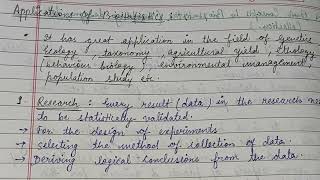 Applications of Biostatistics
• It has great application in the field of Genetic
Ecology, taxonomy, agricultural yield, ethology
(behaviour biology), environmental management,
population study etc.
1 Research : Every result (data) in the research nee
to be statistically validated.
→ For the design of experiments
→ selecting the method of collection of data.
→ Deriving logical conclusions from the data.